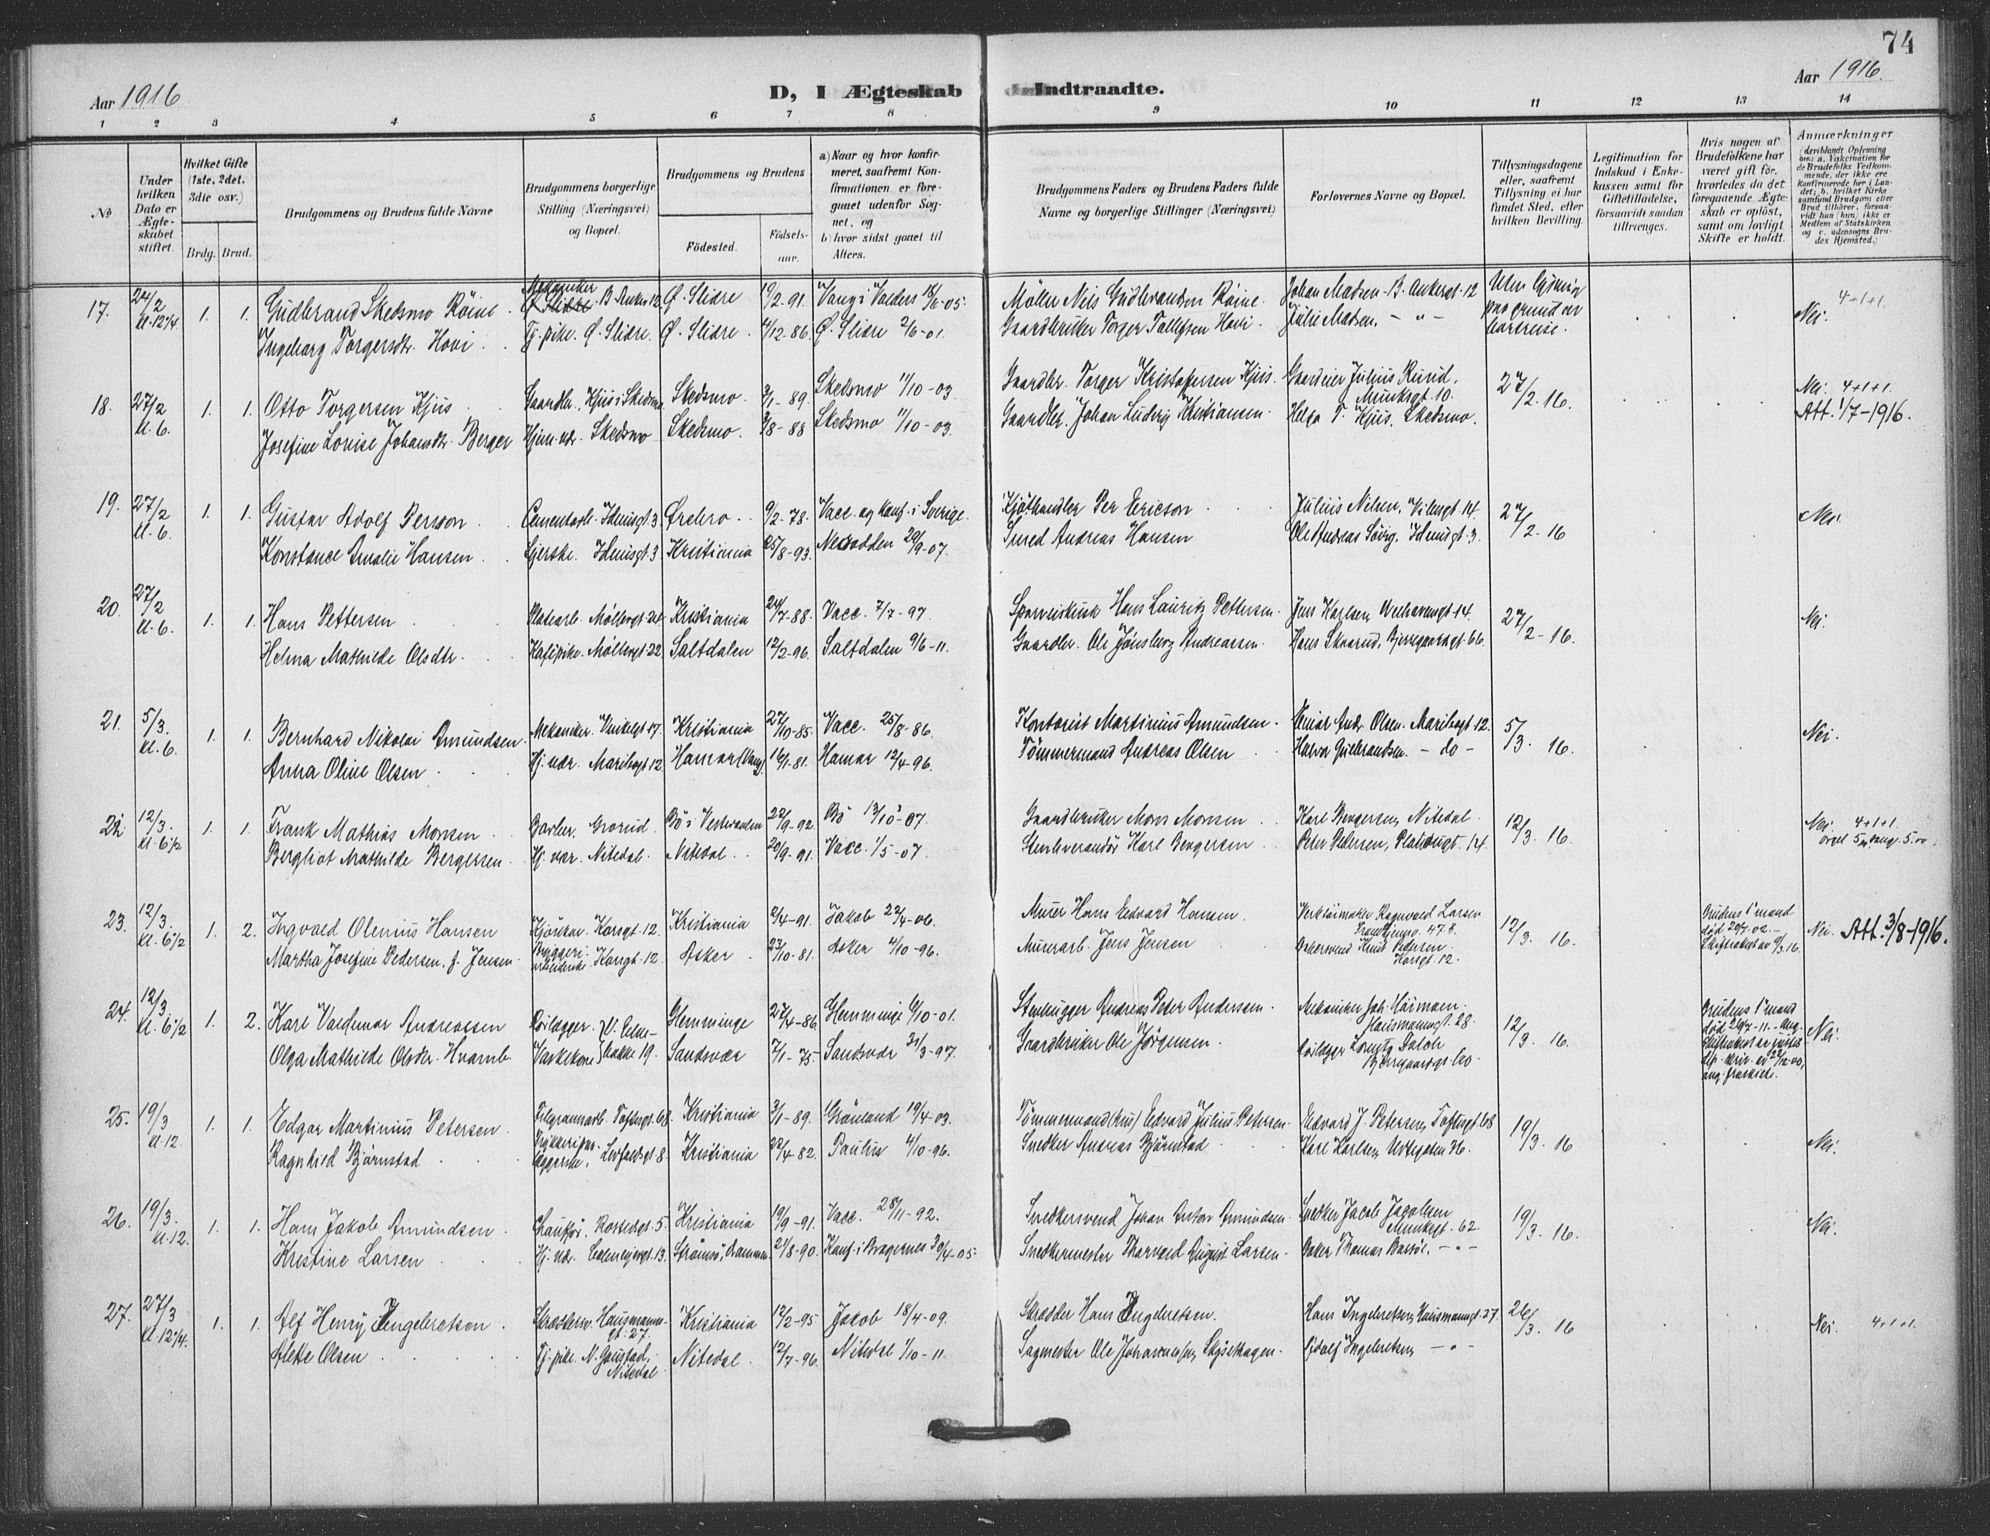 74
Aar 1916
D, I Ægteskab Indtraadte.
Aar 1916.
1 2 3 4 5 6 7 8 9 10 11 12 13 14
No
Under hvilken Dato er Ægteskabet stiftet.
Hvilket Gifte (1ste, 2det, 3die osv.)
Brdg. Brud.
Brudgommens og Brudens fulde Navne
Brudgommens borgerlige Stilling (Næringsvei) og Bopæl.
Brudgommens og Brudens
Fødested.
Fødselsaar.
a) Naar og hvor konfirmeret, saafremt Konfirmationen er foregaaet udenfor Sognet, og
b) hvor sidst gaaet til Alters.
Brudgommens Faders og Brudens Faders fulde Navne og borgerlige Stillinger (Næringsvei)
Forlovernes Navne og Bopæl.
Tillysningsdagene eller, saafremt Tillysning ei har fundet Sted, efter hvilken Bevilling
Legitimation for Indskud i Enkekassen samt for Giftetilladelse, forsaavidt saadan tiltrænges.
Hvis nogen af Brudefolkene har været gift før, hvorledes da det foregaaende Ægteskab er opløst, samt om lovligt Skifte er holdt.
Anmærkninger (deriblandt Oplysning om: a. Vakcination for de Brudefolks Vedkommende, der ikke ere konfirmerede her i Landet; b. hvilket Kirkesamfund Brudgom eller Brud tilhører, forsaavidt han (hun) ikke er Medlem af Statskirken og c. udensogns Brudes Hjemsted.)
17. 24/2 kl. 12 1/4 1. 1. Gudbrand Skedsmo Röine B. Ankergt 12 Ø. Slidre 19/2-91. Vang i Valders 18/6-05. Möller Nils Gudbrandsen Röine. Johan Madsen B. Ankergt. 12 Uten lysning paa grund av bortreise. Nei. 4+1+1.
Ingeborg Torgersdtr. Hovi Tj. pike. Ø. Slidre. Ø. Slidre 4/12.86. Ø. Slidre 2/6-01. Gaardbruker Torger Tollefsen Hovi. Julie Madsen. - " -
18. 27/2 kl. 6. 1. 1. Otto Torgersen Kjus Gaardbr. Kjus i Skedsmo Skedsmo. 3/1-89. Skedsmo 11/10-03. Gaardbr. Torger Kristoffersen Kjus. Gaardeier Julius Ruud, Munksgt 10. 27/2.16. Nei. 4+1+1.
Josefine Lovise Johansdtr Berger Hjem. vær. Skedsmo Skedsmo. 3/8-88 Skedsmo 11/10-03. Gaardbr. Johan Ludvig Kristiansen. Helga T. Kjus. Skedsmo. Att. 1/7-1916.
19. 27/2 kl. 6. 1. 1. Gustav Adolf Persson Cementarb. Idunsgt. 3 Ørebro. 9/2-78. Vacc. og konf. i Sverige. Kjöthandler Per Ericson Julius Nilsen, 27/2-16 Nei.
Konstance Amalie Hansen Idunsgt 3 Kristiania 25/8-93. Nesodden 29/9-07. Smed Andreas Hansen Idunsgt. 3.
20. 27/2 kl. 6. 1. 1. Hans Pettersen Møllergt 24 Kristiania 24/7-88. Vacc. 7/7-97. Hans Lauritz Pettersen. Jens Karlsen, 14. 27/2-16. Nei.
Helma Mathilde Olsdtr. Kafépike. Møllergt. 22 Saltdalen 12/2-96. Saltdalen 9/6-11. Gaardbr. Ole Jönsberg Andreassen. Hans Skaarud, Bjerregaardsgt 66
21. 5/3. kl. 6. 1. 1. Bernhard Nikolai Amundsen Mekaniker. 17. Kristiania 27/10-85. Vacc. 25/8-86. Kontorist Martinius Amundsen. Einar Andr. Olsen. Maribogt 12. 5/3. 16. Nei.
Anna Oline Olsen Hj. vær. Maribogt 12 Hamar (Vang) 16/1-81. Hamar 12/4-96. Tømmermand Andreas Olsen Halvor Gulbrandsen. - do -
22. 12/3. kl. 6 1/2 1. 1. Frank Mathias Monsen Barber. Grorud. Bö i Vesteraalen 22/9-92 Bö 13/10-07. Gaardbruker Mons Monsen. Karl Bergersen, Nitedal. 12/3. 16. Nei. 4+1+1.
Bergliot Mathilde Bergersen Hj. vær. Nitedal. Nitedal 20/9-91. Vacc. 1/5-07. Stenleverandör Karl Bergersen. Peter Petersen, 14.
23. 12/3. kl. 6 1/2 1. 2. Ingvald Olenius Hansen Korsgt. 12. Kristiania 2/4-91. Jakob 22/4-06. Murer Hans Edvard Hansen. Ragnvald Larsen 12/3. 16. Brudens 1' mand død 20/7.02. Skifteakst av 9/3.16. Nei. Att. 3/8-1916.
Martha Josefine Pedersen, f. Jensen Bryggeriarbeiderske, Korsgt. 12 Asker 23/10-81. Asker 4/10-96. Murarb. Jens Jensen Knud Pedersen Korsgt. 12.
24. 12/3 kl. 6 1/2 1. 2. Karl Valdemar Andreassen Rörlægger. Glemminge 27/4-86. Glemminge 6/10-01. Stenhugger Andreas Peter Andersen. Mekaniker Joh. Hausmannsgt. 28. 12/3. 16. Brudens 1' mand død Nei.
Olga Mathilde Olsdtr. Hvamb Vaskekone 19. Sandsvær 7/1-75. Sandsvær 31/3-97. Gaardbruker Ole Jörgensen. Bjerregaardsgt 60.
25. 19/3 kl. 12. 1. 1. Edgar Martinius Petersen Toftesgt. 68. Kristiania 3/1-89. Grönland 19/4-03. Tømmermand (hus) Edvard Julius Petersen. Edvard J. Petersen, Toftesgt 68 19/3. 16 Nei.
Ragnhild Bjørnstad 8. Kristiania 22/4-82. Paulus 4/10-96. Snedker Andreas Bjørnstad Karl Karlsen, Urtegaten 36.
26. 19/3. kl. 12. 1. 1. Hans Jakob Amundsen Chauffør. Rostedsgt. 5 Kristiania 19/9-91. Vacc. 28/11-92. Snedkersvend Johan Anton Amundsen Snedker Jacob Jacobsen Munksgt. 62 19/3. 16. Nei.
Kristine Larsen Hj. vær. 13. Strømsö, Drammen 21/8-90. Konf. i Bragernes 30/4-05. Snedkermester Thorvald August Larsen. Baker Thomas - " -
27. 27/3 kl. 12 1/4. 1. 1. Alf Henry Engebretsen Hausmannsgt. 27. Kristiania 12/2-95 Jakob 18/4-09. Skrædder Hans Engebretsen. Hans Ingebretsen, Hausmannsgt. 27. 26/3. 16 Nei. 4+1+1.
Alette Olsen Tj. pike. N. Gaustad, Nitedal Nitedal. 12/7-96. Nitedal 1/10-11. Sagmester Ole Johannesen Ingebretsen, - " -